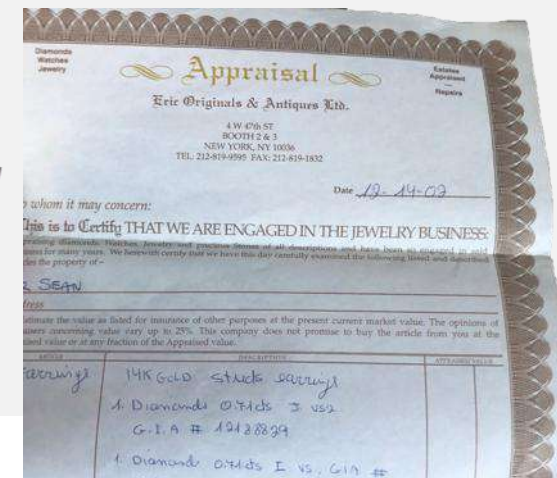 Diamonds
Watches
Jewelry
Appraisal
Estates
Appraised
Repairs
Eric Originals & Antiques Ltd.
4 W 47th ST
BOOTH 2 & 3
NEW YORK, NY 10036
TEL. 212-819-9595 FAX: 212-819-1832
Date 12-14-02
whom it may concern:
This is to Certify THAT WE ARE ENGAGED IN THE JEWELRY BUSINESS:
diamonds, Watches, Jewelry and precious Stones of all descriptions and have been so engaged in said
for many years. We herewith certify that we have this day carefully examined the following listed and described
the property of-
SEAN
the value as listed for insurance of other purposes at the present current market value. The opinions of
concerning value vary up to 25%. This company does not promise to buy the article from you at the
value or at any fraction of the Appraised value.
ARTICLE DESCRIPTION APPRAISED VALUE
earrings 14K GOLD studs earrings
1. Diamonds 0.71cts I VS2
G.I.A # 12138829
1. Diamond 0.71cts I VS, GIA #